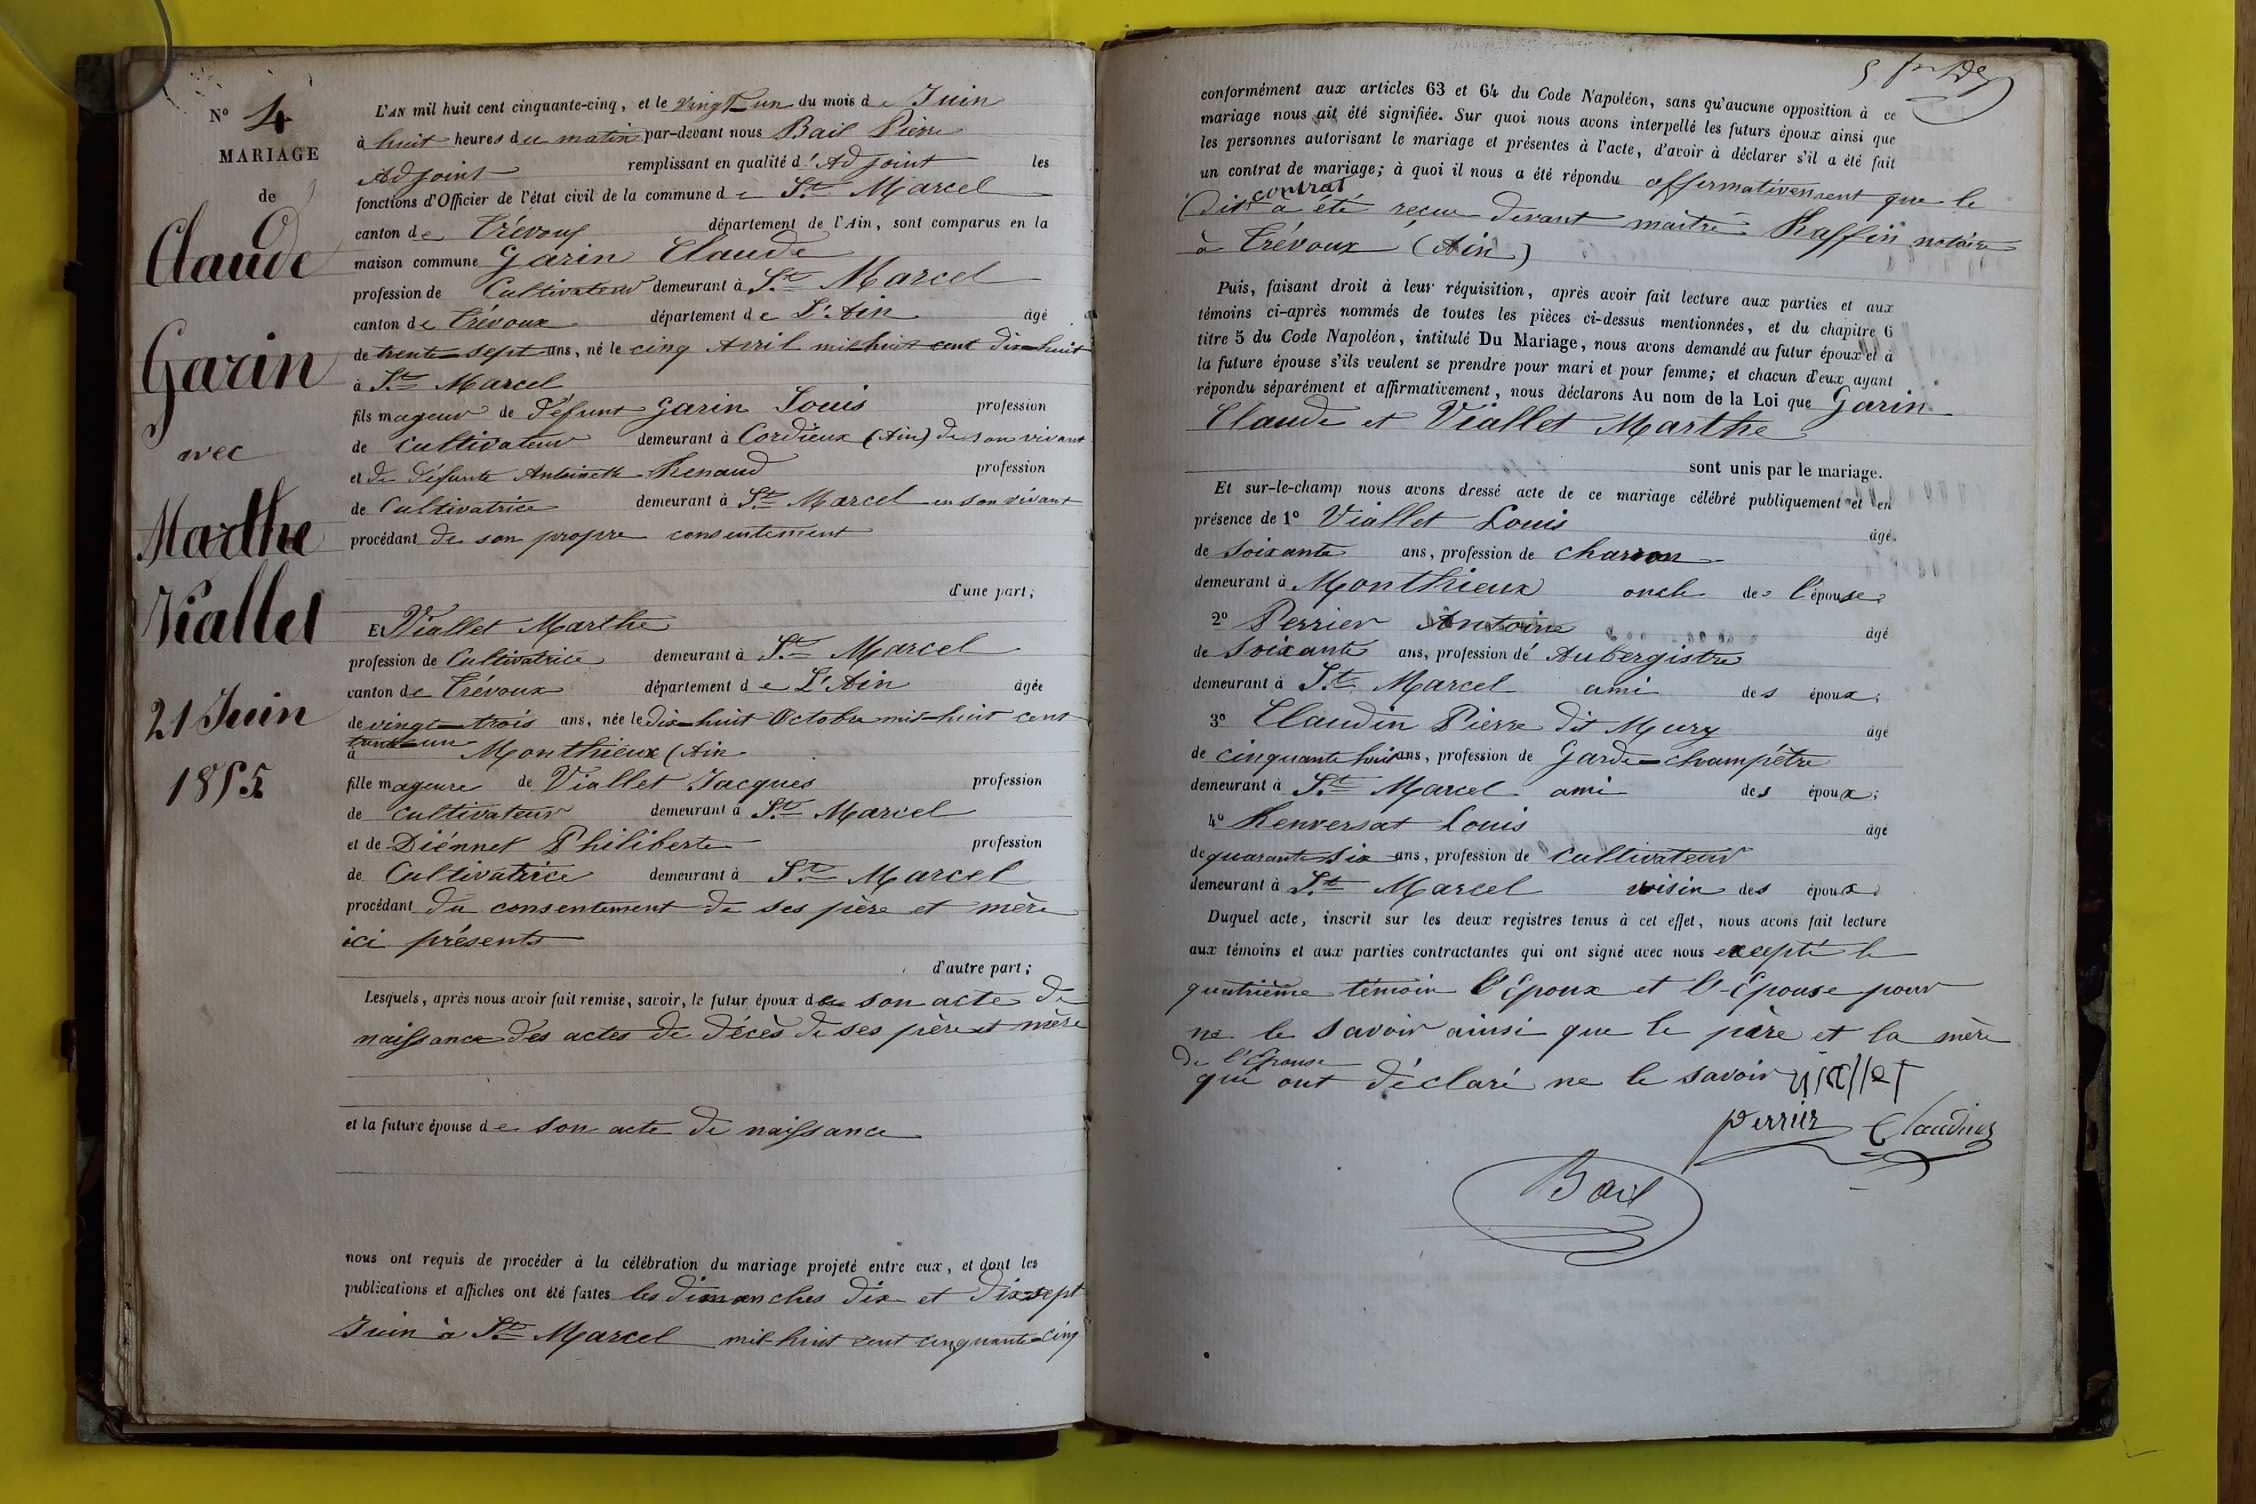 N° 4
MARIAGE
de
Claude
Garin
avec
Marthe
Viallet
21 Juin
1855
L'AN mil huit cent cinquante-cinq, et le vingt un du mois de Juin
à huit heures du matin par-devant nous Bail Pierre
Adjoint remplissant en qualité d'Adjoint les
fonctions d'Officier de l'état civil de la commune de St. Marcel
canton de Trévoux département de l'Ain, sont comparus en la
maison commune Garin Claude
profession de Cultivateur demeurant à St. Marcel
canton de Trévoux département de L'Ain âgé
de trente-sept ans, né le cinq Avril mil huit cent dix-huit
à St. Marcel
fils mageur de défunt Garin Louis profession
de Cultivateur demeurant à Cordieux (Ain) de son vivant
et de défunte Antoinette Renaud profession
de Cultivatrice demeurant à St. Marcel en son vivant
procédant de son propre consentement
d'une part;
Et Viallet Marthe
profession de Cultivatrice demeurant à St. Marcel
canton de Trévoux département de L'Ain âgée
de vingt-trois ans, née le dix-huit Octobre mil-huit cent
trente-un
à Monthieux (Ain
fille mageure de Viallet Jacques profession
de cultivateur demeurant à St. Marcel
et de Diénnet Philiberte profession
de Cultivatrice demeurant à St. Marcel
procédant du consentement de ses père et mère
ici présents
d'autre part;
Lesquels, après nous avoir fait remise, savoir, le futur époux de son acte de
naissance des actes de décès de ses père et mère
et la future épouse de son acte de naissance
nous ont requis de procéder à la célébration du mariage projeté entre eux, et dont les
publications et affiches ont été faites les dimanches dix et dix-sept
Juin à St. Marcel mil huit cent cinquante-cinq
conformément aux articles 63 et 64 du Code Napoléon, sans qu'aucune opposition à ce
mariage nous ait été signifiée. Sur quoi nous avons interpellé les futurs époux ainsi que
les personnes autorisant le mariage et présentes à l'acte, d'avoir à déclarer s'il a été fait
un contrat de mariage; à quoi il nous a été répondu affirmativement que le
dit contrat a été reçu devant maître Raffin notaire
à Trévoux (Ain)
Puis, faisant droit à leur réquisition, après avoir fait lecture aux parties et aux
témoins ci-après nommés de toutes les pièces ci-dessus mentionnées, et du chapitre 6
titre 5 du Code Napoléon, intitulé Du Mariage, nous avons demandé au futur époux et à
la future épouse s'ils veulent se prendre pour mari et pour femme; et chacun d'eux ayant
répondu séparément et affirmativement, nous déclarons Au nom de la Loi que Garin
Claude et Viallet Marthe
sont unis par le mariage.
Et sur-le-champ nous avons dressé acte de ce mariage célébré publiquement et en
présence de 1° Viallet Louis âgé
de Soixante ans, profession de charron
demeurant à Monthieux oncle de l'épouse
2° Perrier Antoine âgé
de Soixante ans, profession de Aubergistre
demeurant à St. Marcel ami des époux;
3° Claudin Pierre dit Mury âgé
de cinquante huit ans, profession de Garde-champétre
demeurant à St. Marcel ami des époux;
4° Renversat Louis âgé
de quarante six ans, profession de cultivateur
demeurant à St. Marcel voisin des époux
Duquel acte, inscrit sur les deux registres tenus à cet effet, nous avons fait lecture
aux témoins et aux parties contractantes qui ont signé avec nous excepté le
quatrième témoin l'époux et l'épouse pour
ne le savoir ainsi que le père et la mère
de l'Epouse
qui ont déclaré ne le savoir viallet
perrier Claudin
Bail